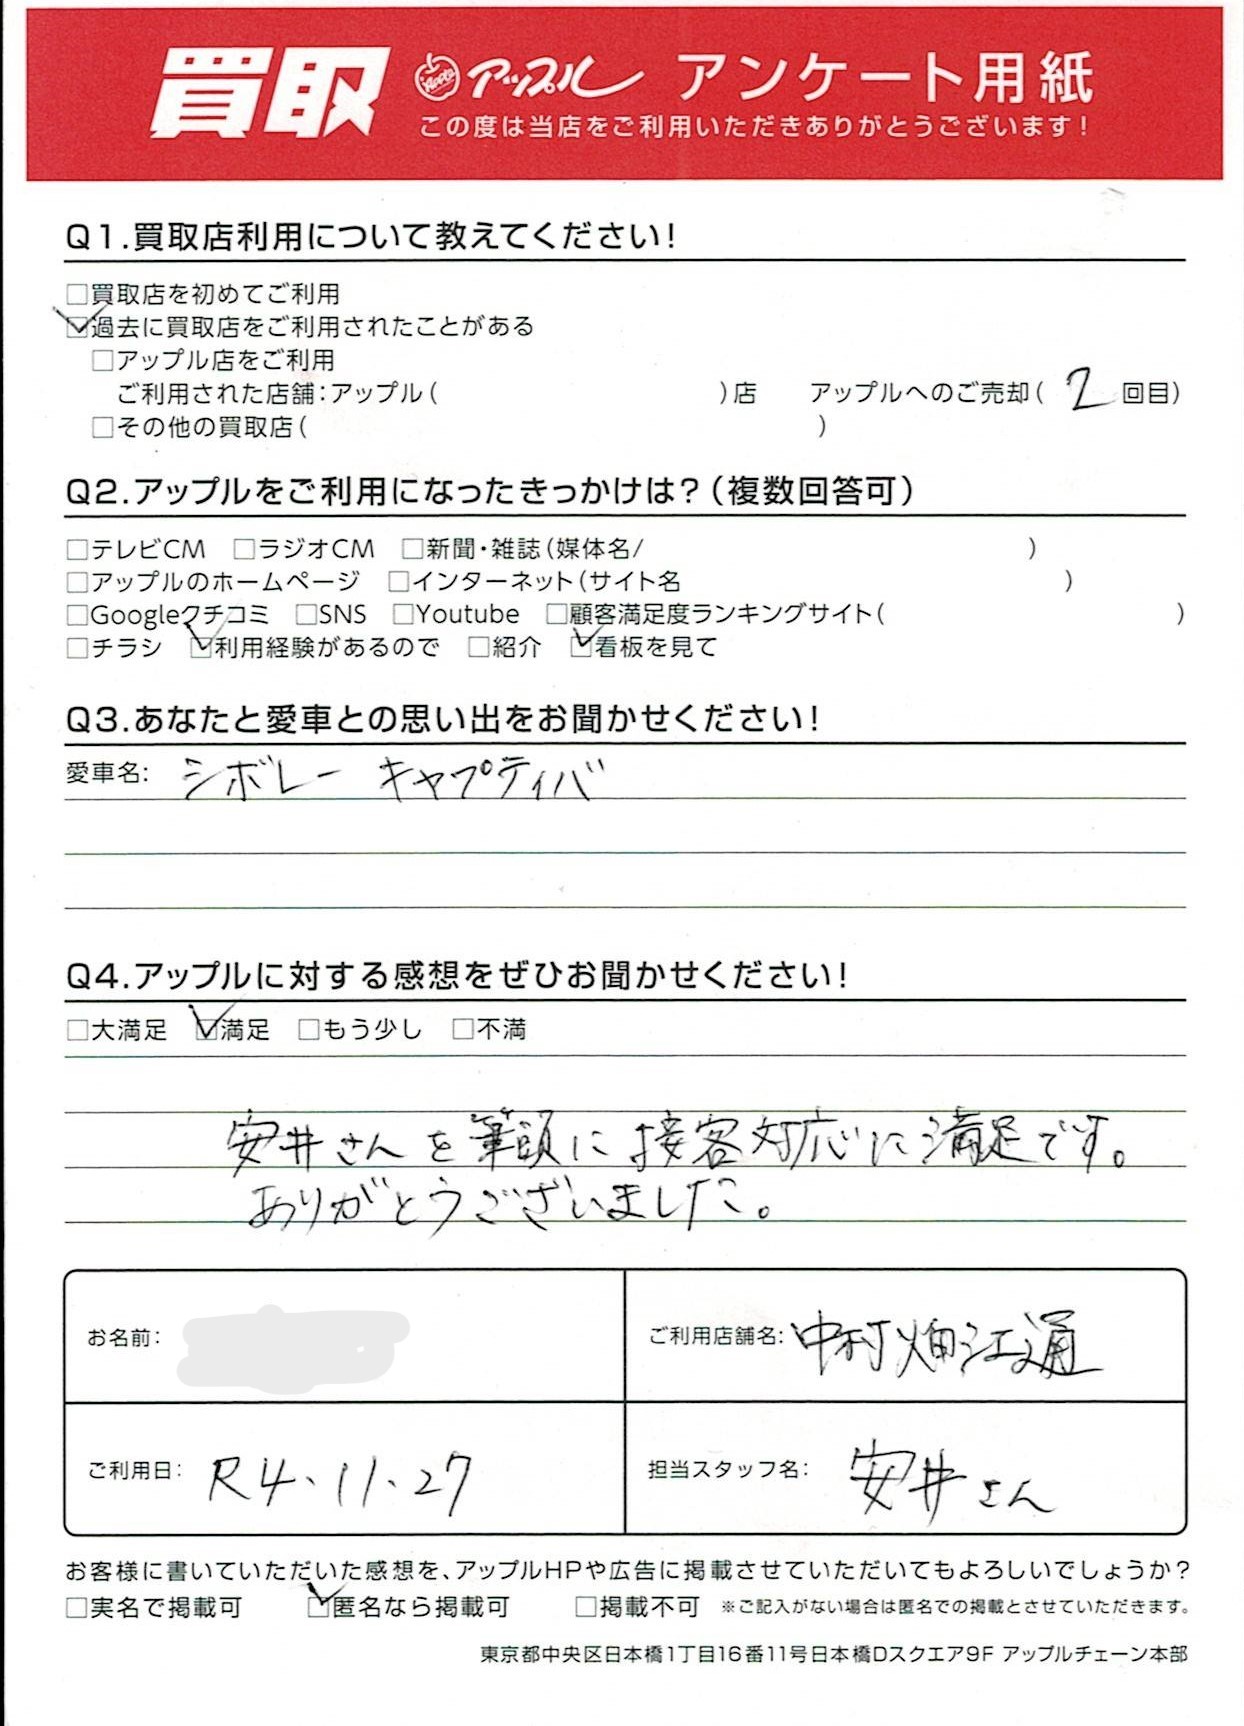 買取 Apple アップル アンケート用紙
この度は当店をご利用いただきありがとうございます!
Q1.買取店利用について教えてください!
□買取店を初めてご利用
☑過去に買取店をご利用されたことがある
□アップル店をご利用
ご利用された店舗:アップル( )店 アップルへのご売却( 2 回目)
□その他の買取店( )
Q2.アップルをご利用になったきっかけは?(複数回答可)
□テレビCM □ラジオCM □新聞・雑誌(媒体名/ )
□アップルのホームページ □インターネット(サイト名 )
□Googleクチコミ □SNS □Youtube □顧客満足度ランキングサイト( )
□チラシ ☑利用経験があるので □紹介 ☑看板を見て
Q3.あなたと愛車との思い出をお聞かせください!
愛車名: シボレー キャプティバ
Q4.アップルに対する感想をぜひお聞かせください!
□大満足 ☑満足 □もう少し □不満
安井さんを筆頭に接客対応に満足です。
ありがとうございました。
お名前:
ご利用店舗名: 中村畑江通
ご利用日: R4.11.27
担当スタッフ名: 安井さん
お客様に書いていただいた感想を、アップルHPや広告に掲載させていただいてもよろしいでしょうか?
□実名で掲載可 ☑匿名なら掲載可 □掲載不可 ※ご記入がない場合は匿名での掲載とさせていただきます。
東京都中央区日本橋1丁目16番11号日本橋Dスクエア9F アップルチェーン本部